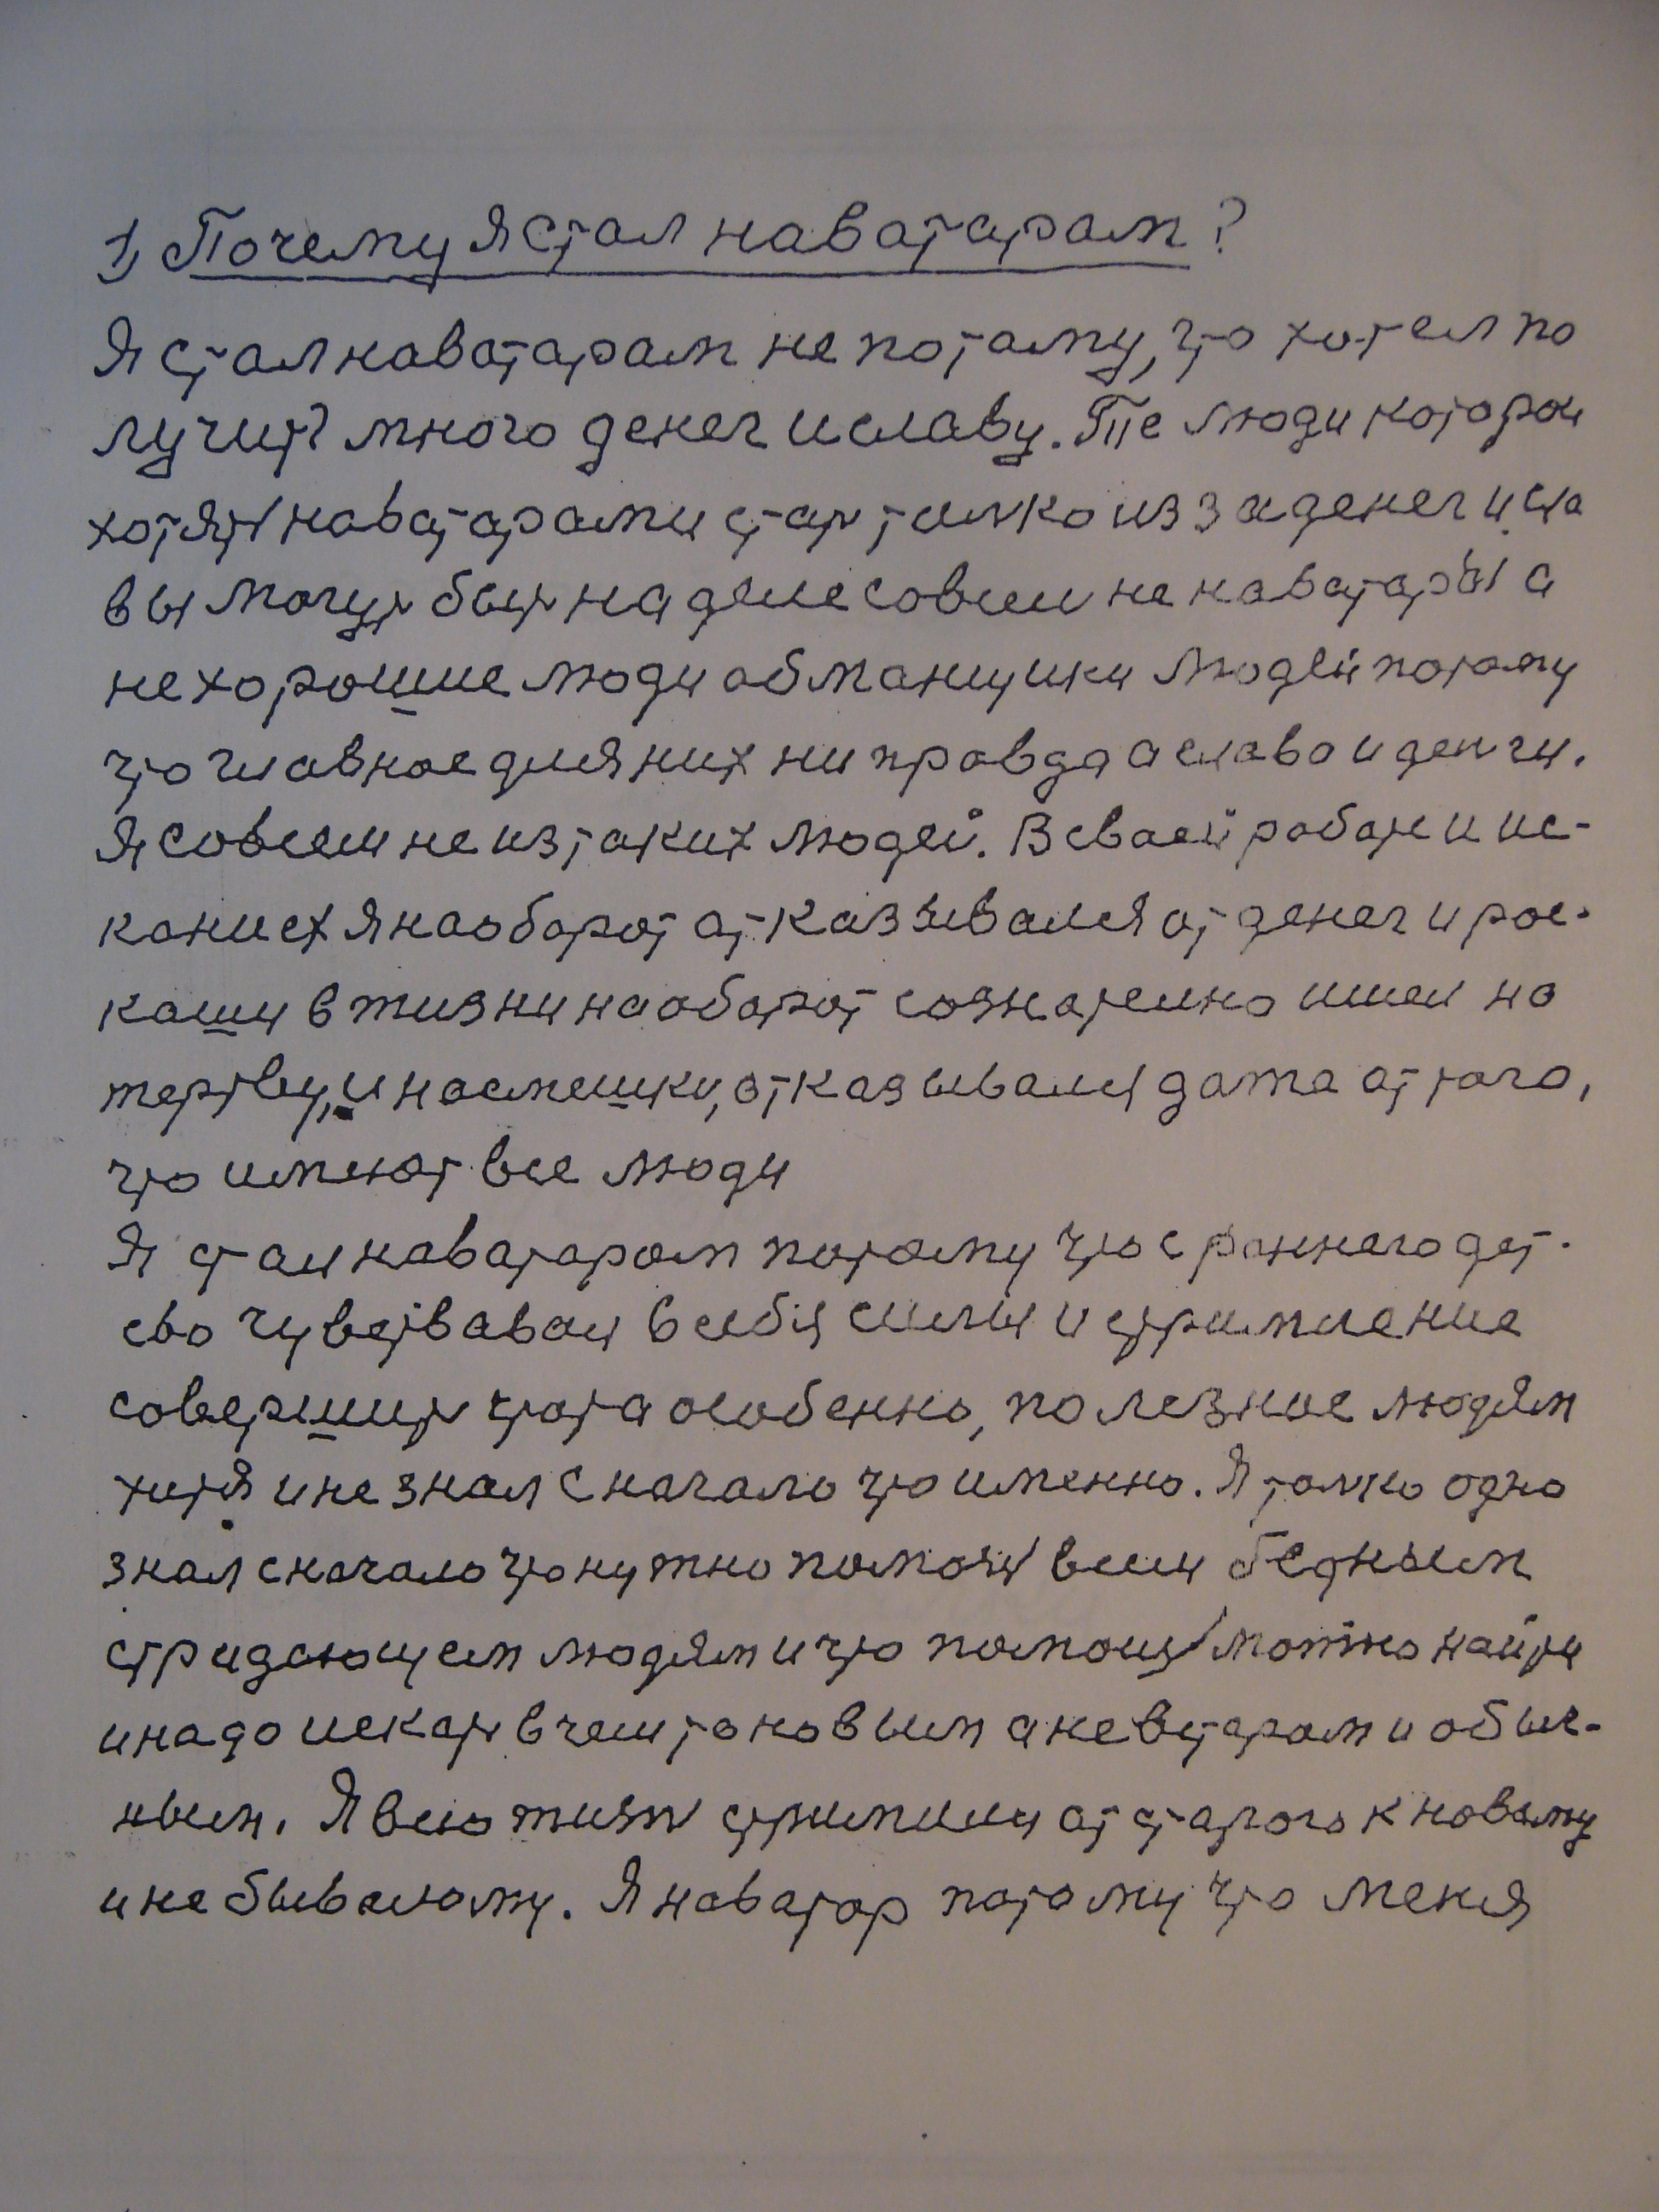 1) Почему я стал наватарам?
Я стал наватарам не потаму, что хотел по
лучить много денег и славу. Те люди которои
хотять наватарами стать толко из за денег и сла
вы могуть быть на деле совсем не наватары а
не хорошие люди обманщики людей потаму
что главное для них ни правда а слава и денги.
Я совсем не из таких людей. В сваей работе и ис-
каниех я наоборот атказывался от денег и рос-
каши в жизни наоборот сознателно ишол на
жертву, и насмешки, отказывался дажа от того,
что имеют все люди
Я стал наватаром потому что с раннего дет-
сва чувствавал в себя силы и стримление
совершить чтота особенно, полезное людям
хотя и не знал с начало что именно. Я толко одно
знал с начало что нужно помочь всем бедным
стридающем людям и что помощь можно найти
и надо искать в чем то новым а не в старом и обыч-
ным. Я всю жизть стримился от старого к новаму
и не бывалому. Я наватор потому что меня